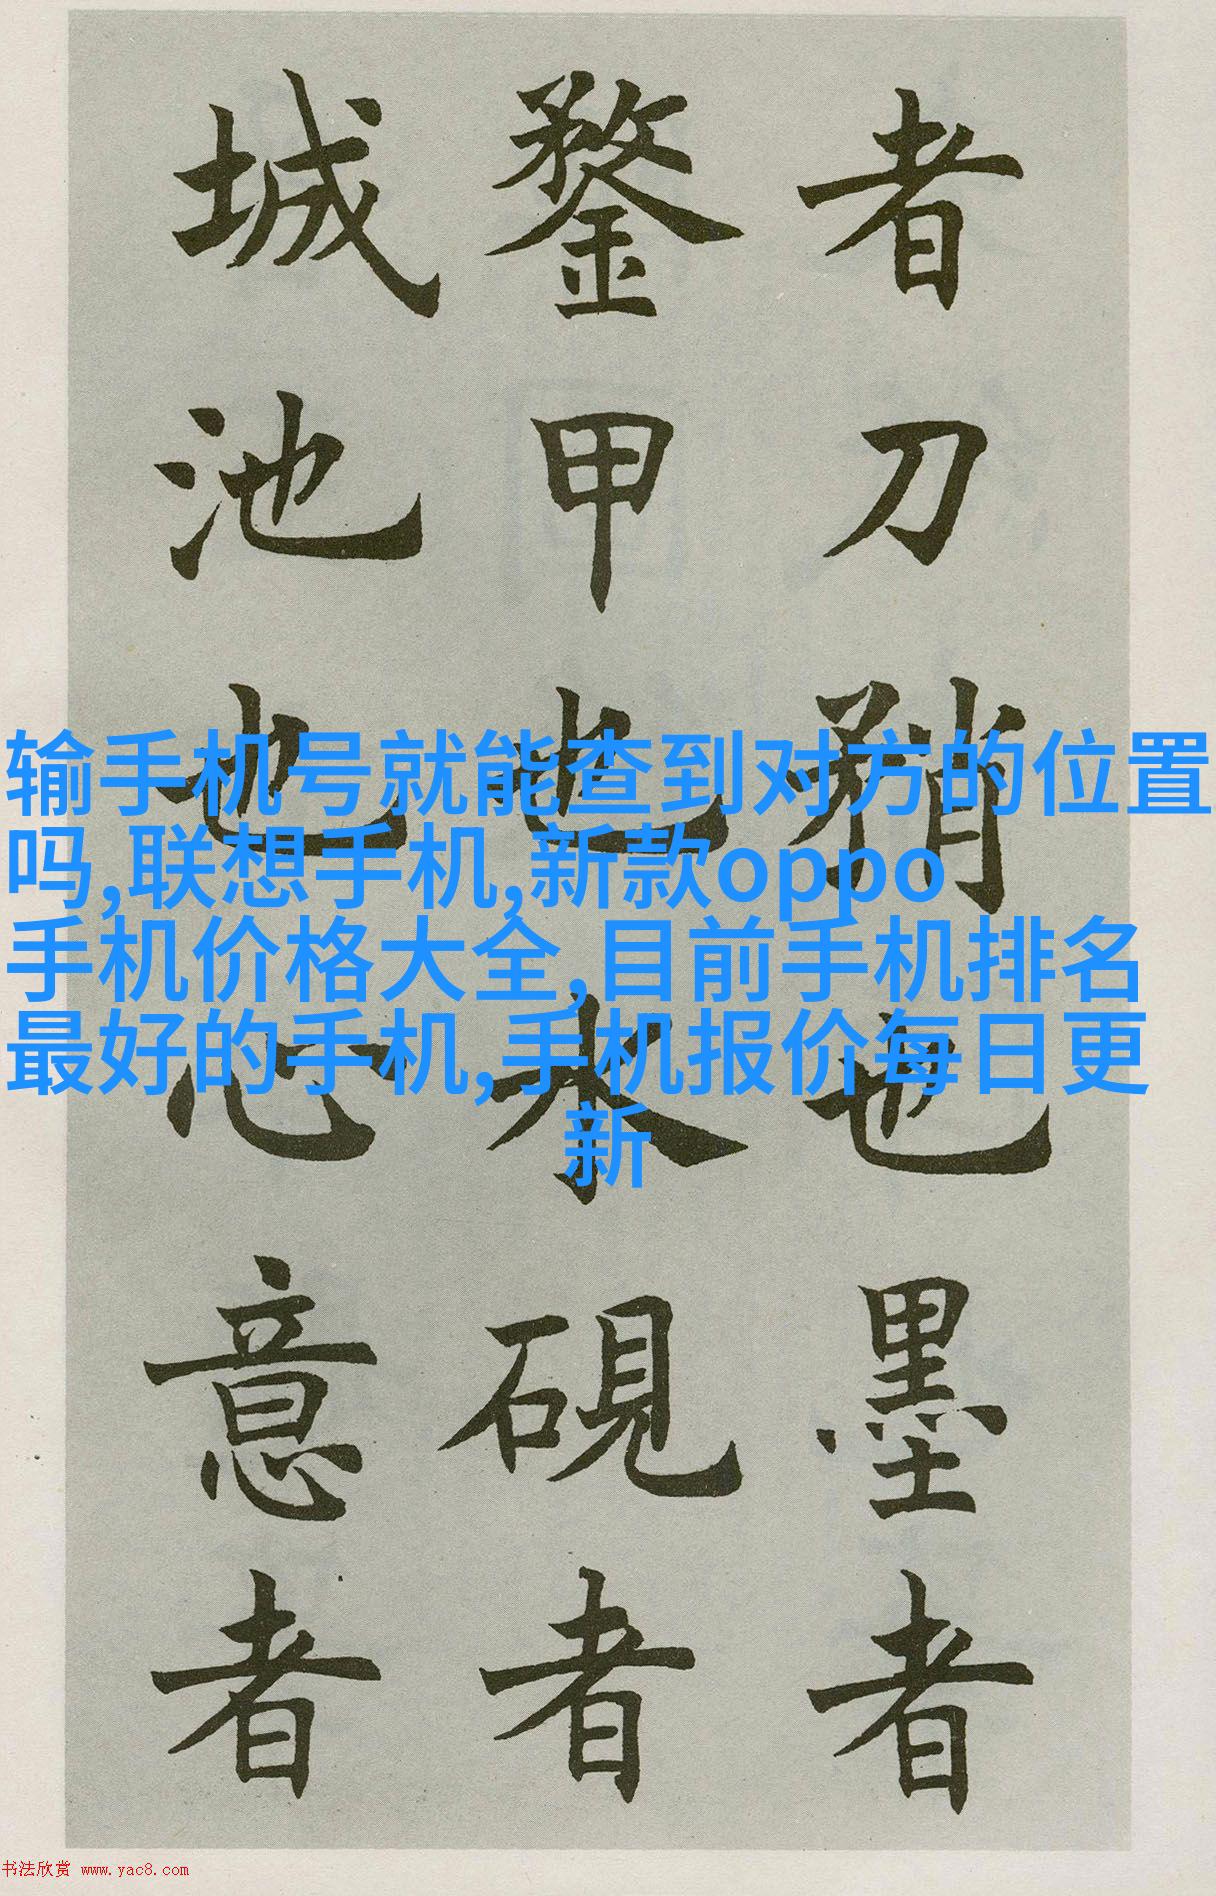 者刀矟也墨者
鍪甲也水硯者
城池也心意者
输手机号就能查到对方的位置
吗,联想手机,新款oppo
手机价格大全,目前手机排名
最好的手机,手机报价每日更
新
书法欣赏 www.yac8.com